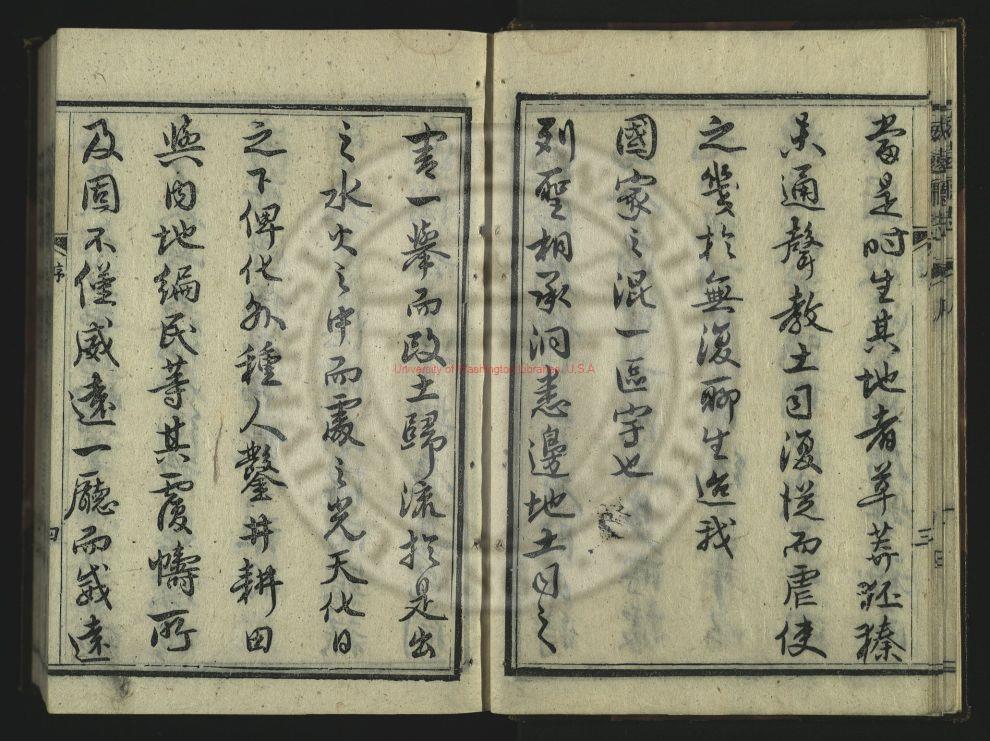 當是时生其地者草莽狉獉
未通聲教土司復從而虐使
之幾於無復聊生迨我
國家之混一區宇也
列聖相承洞悉邊地土司之
害一舉而改土歸流於是出
之水火之中而處之光天化日
之下俾化外種人鑿井耕田
與內地編民等其覆幬所
及固不僅威遠一廳而威遠
三
序
四
University of Washington Libraries, U.S.A